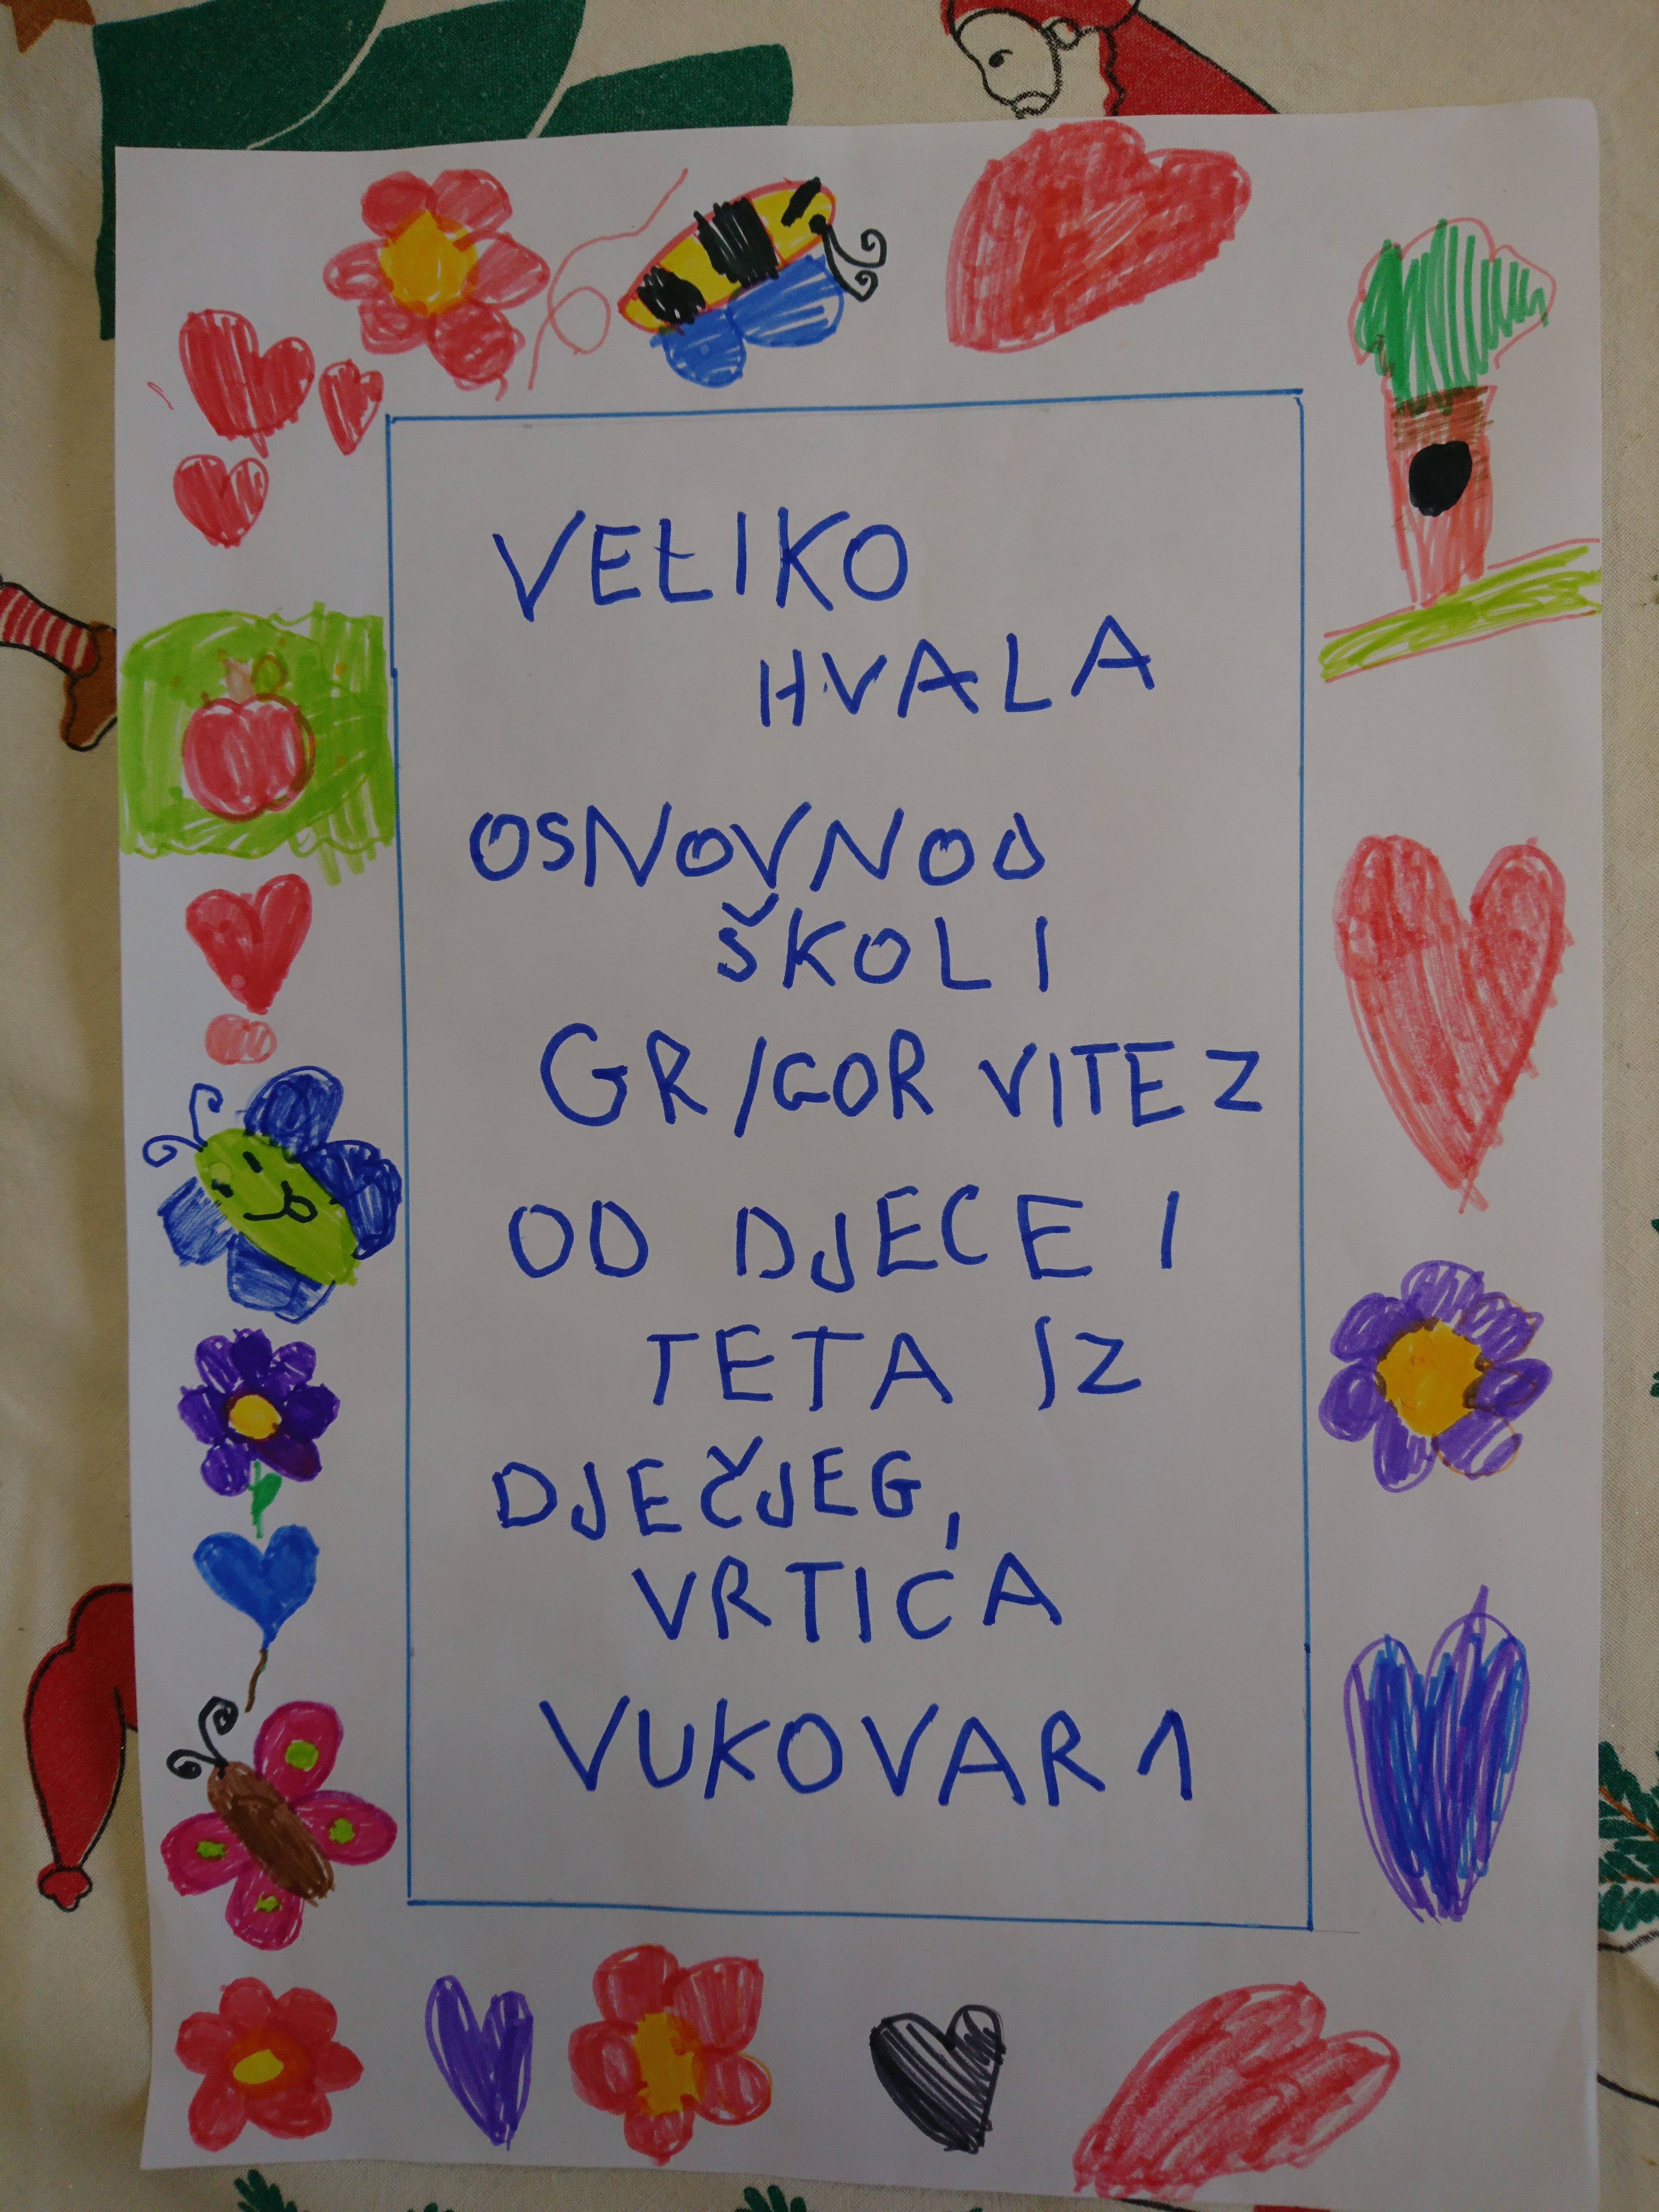 VELIKO
HVALA
OSNOVNOJ
ŠKOLI
GRIGOR VITEZ
OD DJECE I
TETA IZ
DJEČJEG,
VRTIĆA
VUKOVAR 1